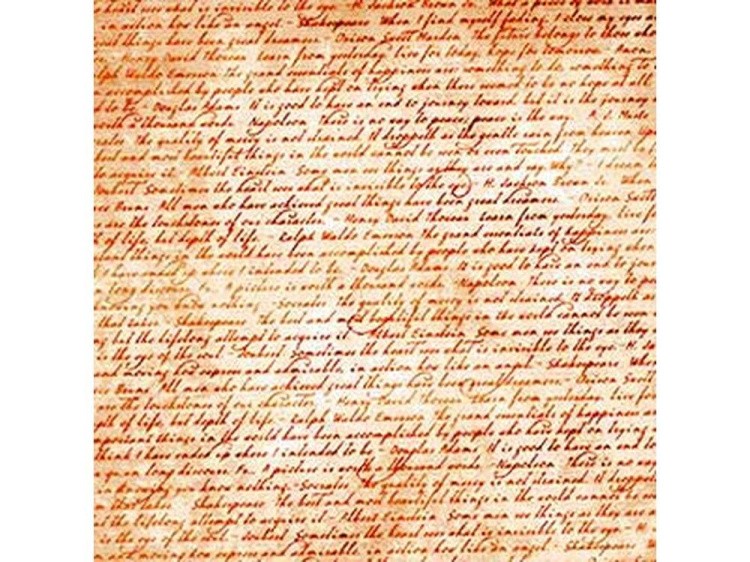 what is invisible to the eye - H. Jackson Brown Jr.
in action how like an angel - Shakespeare When I find myself fading, I close my eyes
good things have been great dreamers - Orison Swett Marden The future belongs to those who
David Thoreau Learn from yesterday, live for today, hope for tomorrow.
Ralph Waldo Emerson the grand essentials of happiness are something to do, something to
accomplished by people who have kept on trying when there seemed to be no hope at all
d to be Douglas Adams It is good to have an end to journey toward, but it is the journey
worth a thousand words Napoleon there is no way to peace, peace is the way A. J. Muste
the quality of mercy is not strained It droppeth as the gentle rain from heaven
best and most beautiful things in the world cannot be seen touched they must
to acquire it Albert Einstein Some men see things as they are and say Why? - I dream
Sometimes the heart sees what is invisible to the eye - H. Jackson Brown Jr.
All men who have achieved great things have been great dreamers - Orison Swett
are the touchstones of our character - Henry David Thoreau Learn from yesterday, live
of life, but depth of life. Ralph Waldo Emerson the grand essentials of happiness are
things in the world have been accomplished by people who have kept on trying when
I have ended up where I intended to be - Douglas Adams It is good to have an end to
A picture is worth a thousand words Napoleon there is no way to
nothing - Socrates the quality of mercy is not strained It droppeth as
Shakespeare the best and most beautiful things in the world cannot be seen
but the lifelong attempt to acquire it Albert Einstein Some men see things as they
is the eye of the soul - Joubert Sometimes the heart sees what is invisible to the eye - H.
moving how express and admirable, in action how like an angel - Shakespeare When
All men who have achieved great things have been great dreamers - Orison Swett
are the touchstones of our character - Henry David Thoreau Learn from yesterday, live for
of life, but depth of life. Ralph Waldo Emerson the grand essentials of happiness are
important things in the world have been accomplished by people who have kept on trying
think I have ended up where I intended to be - Douglas Adams It is good to have an end to
A picture is worth a thousand words - Napoleon there is no way
nothing - Socrates the quality of mercy is not strained It droppeth
Shakespeare the best and most beautiful things in the world cannot be
but the lifelong attempt to acquire it Albert Einstein Some men see things as they are
is the eye of the soul - Joubert Sometimes the heart sees what is invisible to the eye - H.
moving how express and admirable, in action how like an angel - Shakespeare When